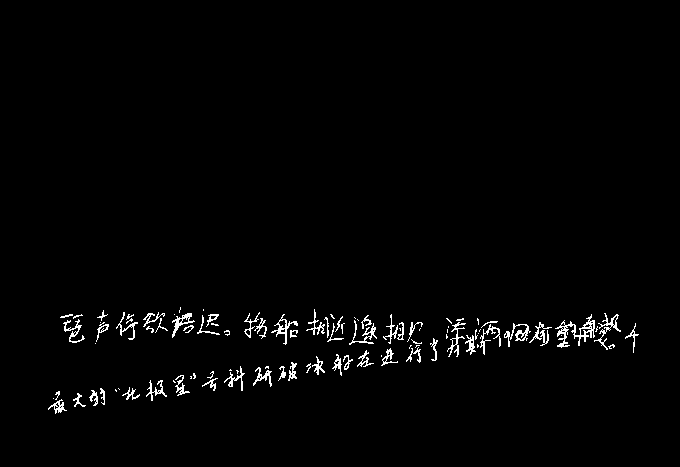 琶声停欲语迟。移船相近邀相见,添酒回灯重
最大的“北极星”号科研破冰船在进行了为期